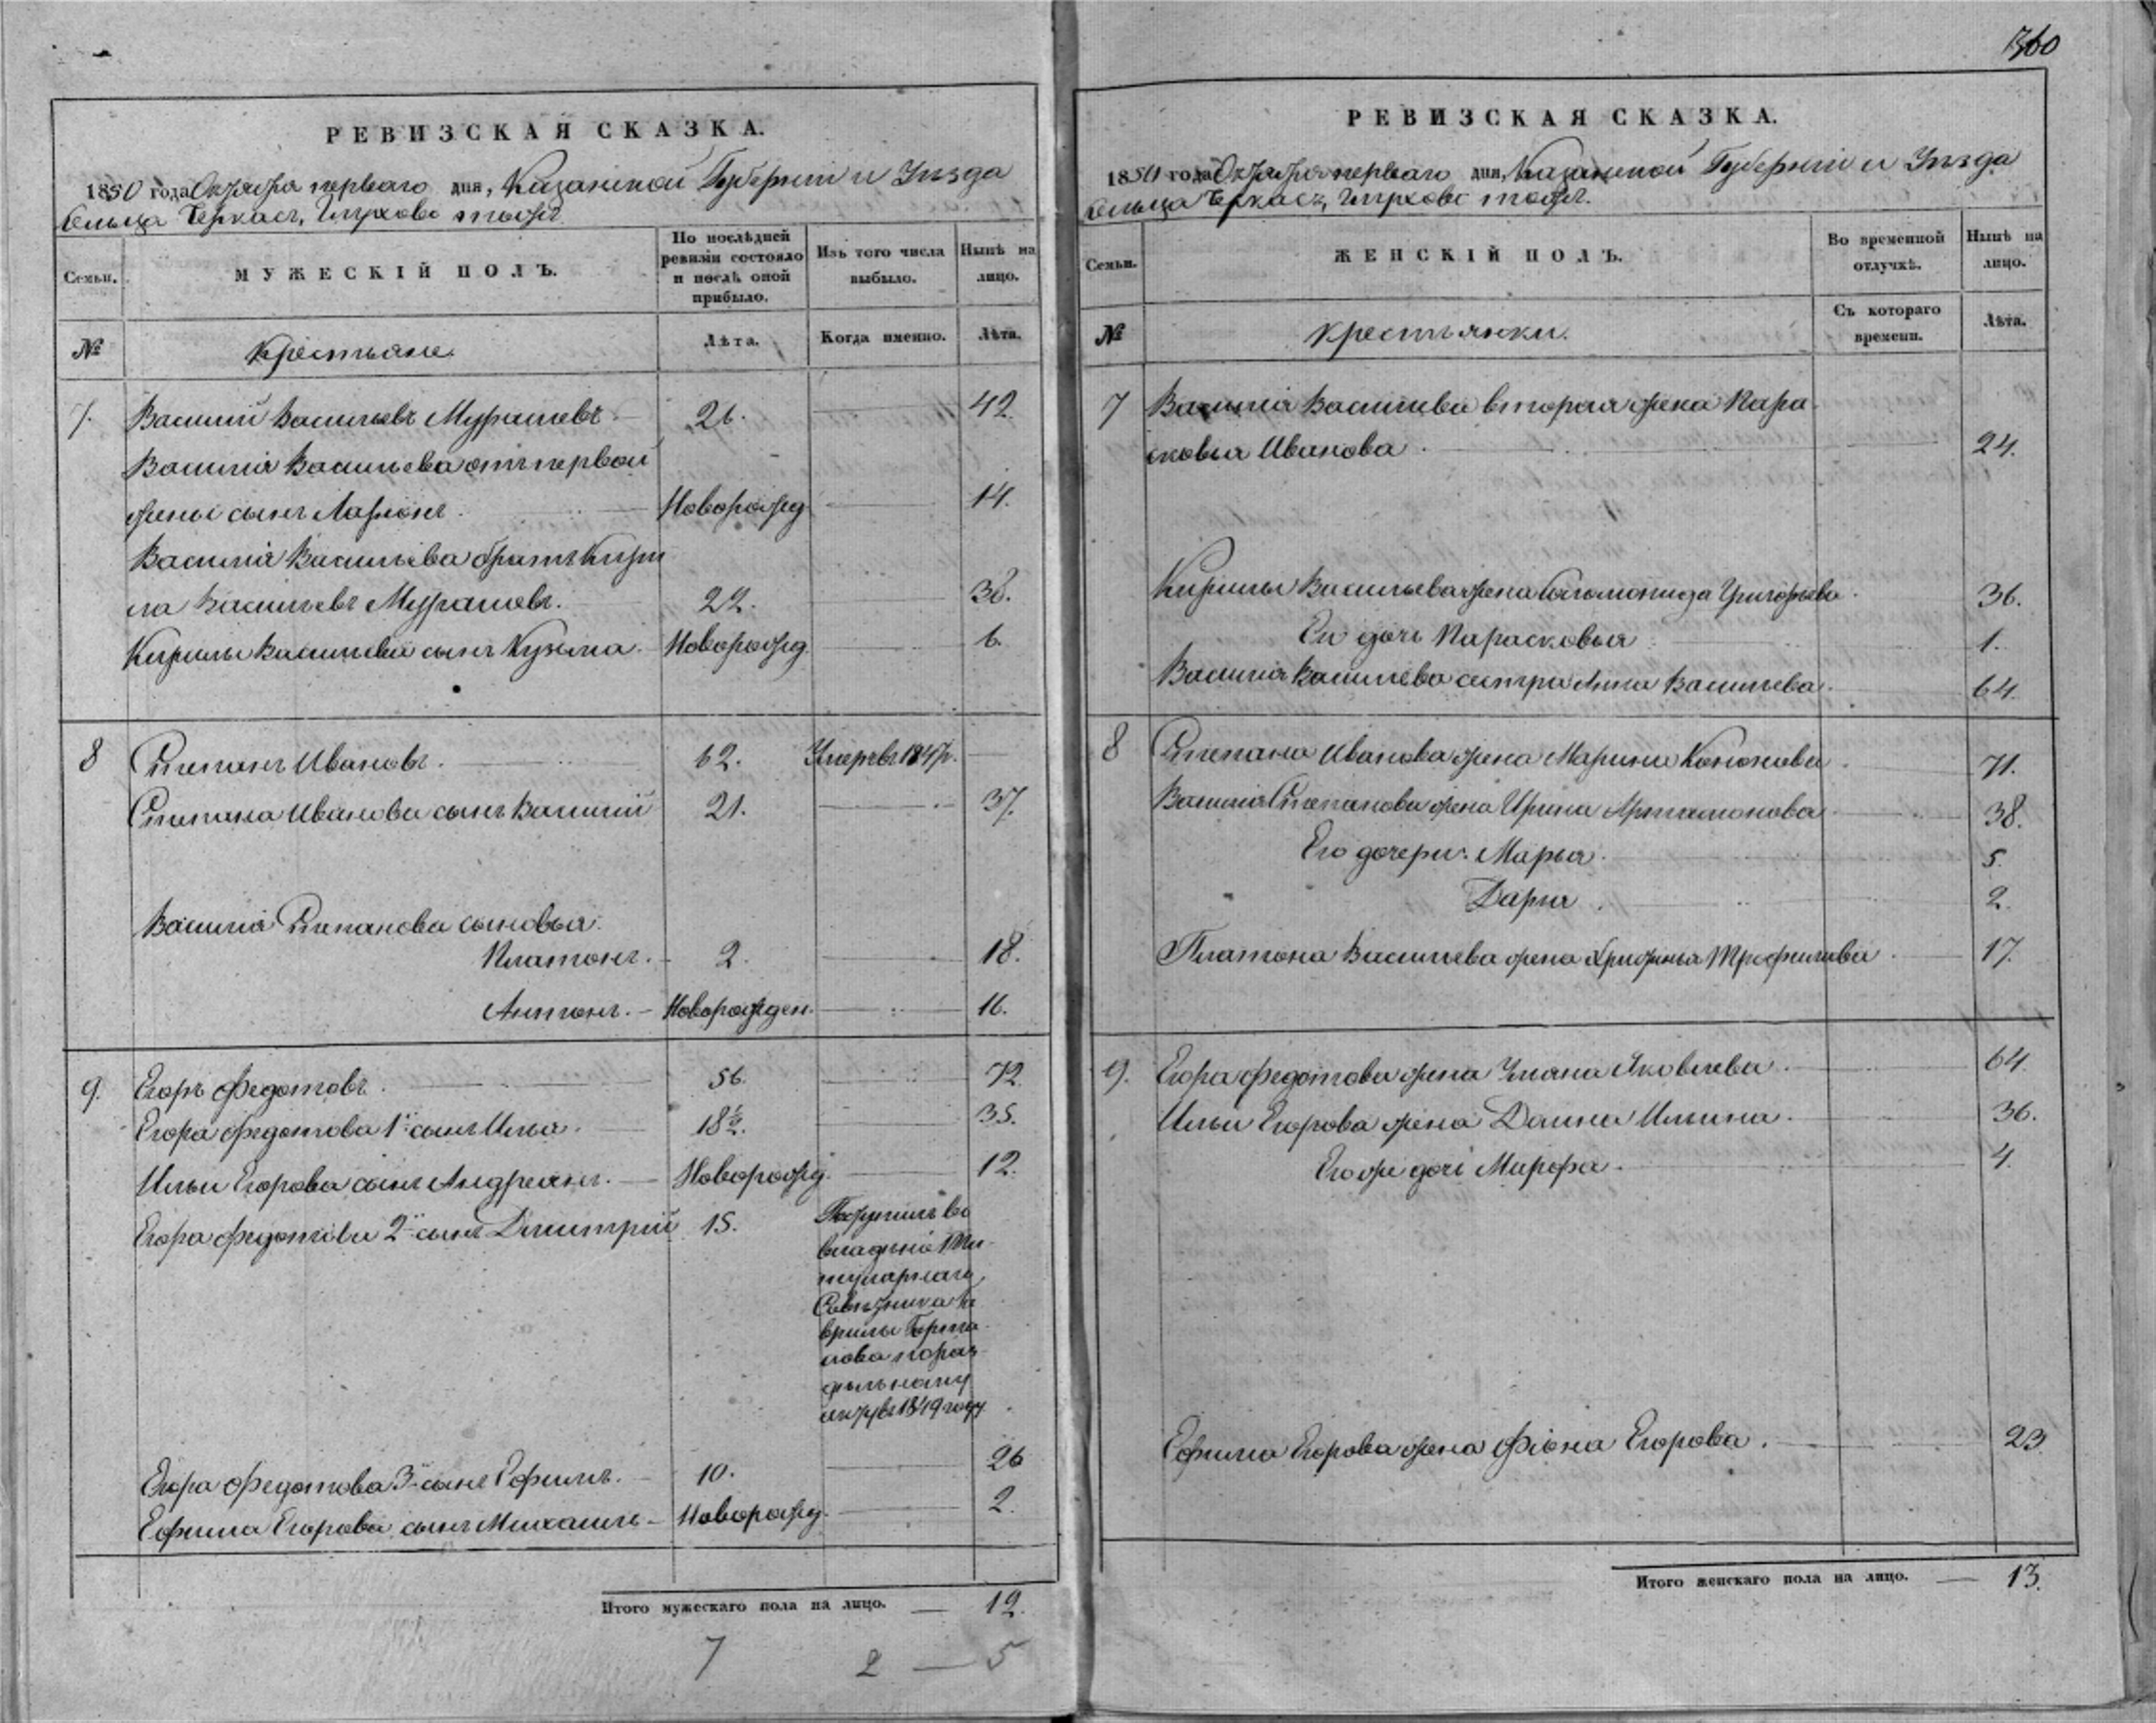 РЕВИЗСКАЯ СКАЗКА.
1850 года Октября перваго дня, Казанской Губерніи и Уезда
сельца Черкасъ, тожъ
Семьи.
МУЖЕСКІЙ ПОЛЪ.
По послѣдней ревизіи состояло и послѣ оной прибыло.
Изъ того числа выбыло.
Нынѣ на лицо.
№
Крестьяне
Лѣта.
Когда именно.
Лѣта.
7. Василий Васильевъ Мурашовъ 26. 42.
Василія Васильева отъ первой
жены сынъ Ларіонъ. Новорожд 14.
Василія Васильева братъ Кири
ла Васильевъ Мурашовъ. 22. 38.
Кирилы Васильева сынъ Кузьма. Новорожд 6.
8 Степанъ Ивановъ. 62. Умеръ въ 1847 г.
Степана Иванова сынъ Василий 21. 37.
Василія Степанова сыновья:
Платонъ. 2. 18.
Антонъ. Новорожден. 16.
9. Егоръ Федотовъ. 56. 72
Егора Федотова 1й сынъ Илья. 18½. 35.
Ильи Егорова сынъ Андреянъ. Новорожд. 12.
Егора Федотова 2й сынъ Дмитрий 15. во
владение Ти
тулярнаго
Советника
пораз
дельному
акту въ 1849 году.
Егора Федотова 3й сынъ Ефимъ. 10. 26
Ефима Егорова сынъ Михаилъ Новорожд. 2.
Итого мужескаго пола на лицо. — 12.
7 2 — 5
1360
РЕВИЗСКАЯ СКАЗКА.
1850 года Октября перваго дня, Казанской Губерніи и Уезда
сельца Черкасъ, тожъ.
Семьи.
ЖЕНСКІЙ ПОЛЪ.
Во временной отлучкѣ.
Нынѣ на лицо.
№
Крестьянки.
Съ котораго времени.
Лѣта.
7 Василія Васильева вторая жена Пара
сковья Иванова. 24.
Кирилы Васильева жена Соломонида Григорьева. 36.
Ея дочь Парасковья 1.
Василія Васильева сестра Анна Васильева. 64.
8 Степана Иванова жена Марина Кононова 71.
Василія Степанова жена Ирина Артамонова 38.
Его дочери: Марья. 5.
Дарья 2.
Платона Васильева жена Трофимова. 17.
9. Егора Федотова жена Ульяна Яковлева. 64.
Ильи Егорова жена Домна Ильина. 36.
Егоже дочь Марфа. 4.
Ефима Егорова жена Фіона Егорова. 23
Итого женскаго пола на лицо. — 13.